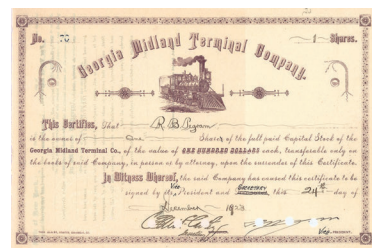 No. 70
1 Shares.
Georgia Midland Terminal Company.
This Certifies, That R B Pegram
is the owner of One Shares of the full paid Capital Stock of the
Georgia Midland Terminal Co., of the value of ONE HUNDRED DOLLARS each, transferable only on
the books of said Company, in person or by attorney, upon the surrender of this Certificate.
In Witness Whereof, the said Company has caused this certificate to be
signed by its Vice President and Secretary this 24th day of
December 1923
Vice PRESIDENT.